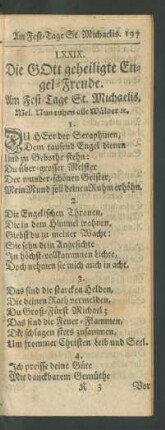 Am Fest-Tage St. Michaelis. 197
LXXIX.
Die GOtt geheiligte En-
gel-Freude.
Am Fest-Tage St. Michaelis.
Mel. Nun ruhen alle Wälder ꝛc.
1.
DU HErr der Seraphinen,
Dem tausend Engel dienen
Und zu Gebothe stehn:
Du über-grosser Meister
Der wunder-schönen Geister,
Mein Mund soll deinen Ruhm erhöhn.
2.
Die Engelischen Thronen,
Die in dem Himmel wohnen,
Giebst du zu meiner Wacht:
Sie sehn dein Angesichte
In höchst-vollkommnen Lichte,
Doch nehmen sie mich auch in acht.
3.
Das sind die starcken Helden,
Die deinen Rath vermelden,
Du Groß-Fürst Michael;
Das sind die Feuer-Flammen,
Die schlagen stets zusammen,
Um frommer Christen Leib und Seel.
4.
Ich preisse deine Güte
Mit danckbarem Gemüthe
N 3 Vor